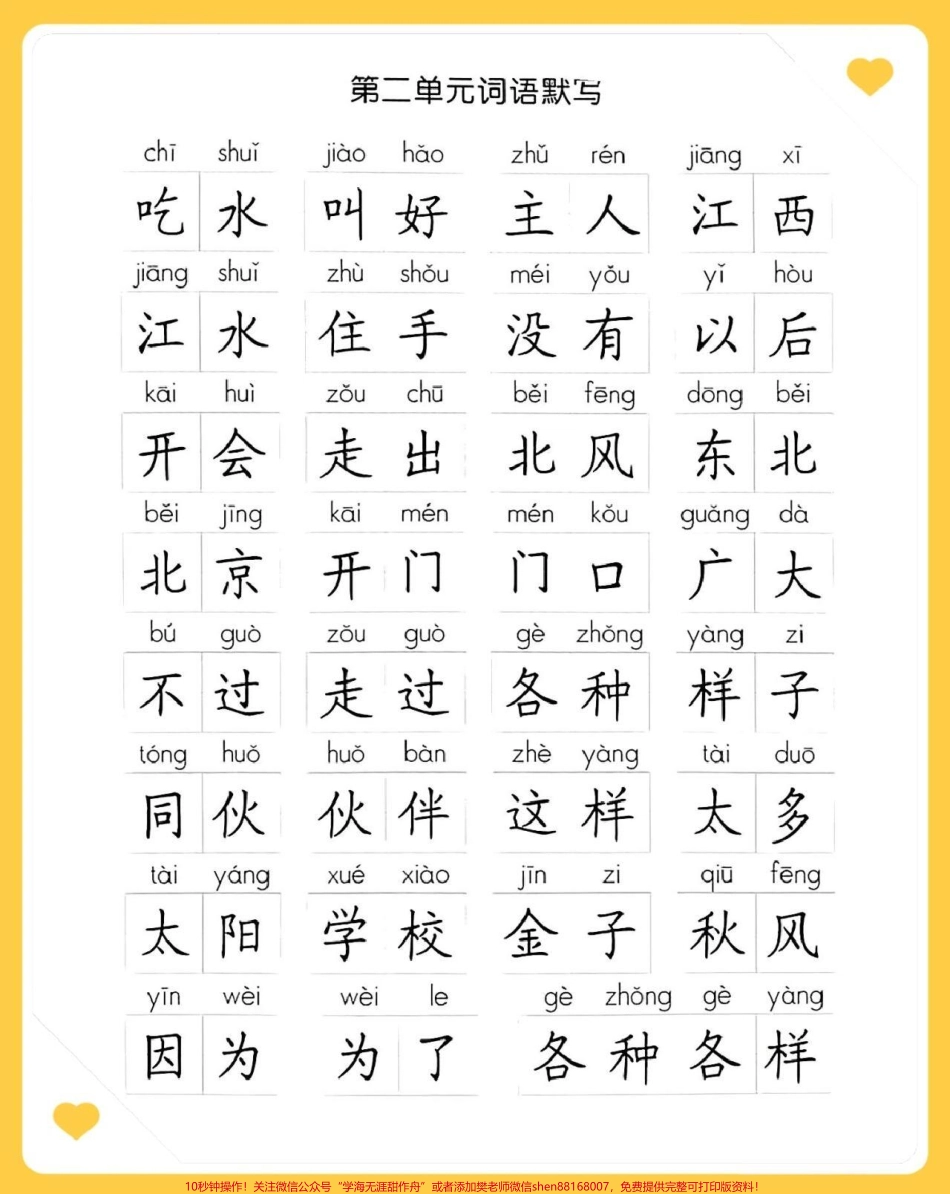 第二单元词语默写
chī shuǐ jiào hǎo zhǔ rén jiāng xī
吃水 叫好 主人 江西
jiāng shuǐ zhù shǒu méi yǒu yǐ hòu
江水 住手 没有 以后
kāi huì zǒu chū běi fēng dōng běi
开会 走出 北风 东北
běi jīng kāi mén mén kǒu guǎng dà
北京 开门 门口 广大
bú guò zǒu guò gè zhǒng yàng zi
不过 走过 各种 样子
tóng huǒ huǒ bàn zhè yàng tài duō
同伙 伙伴 这样 太多
tài yáng xué xiào jīn zi qiū fēng
太阳 学校 金子 秋风
yīn wèi wèi le gè zhǒng gè yàng
因为 为了 各种各样
10秒钟操作！关注微信公众号“学海无涯甜作舟”或者添加樊老师微信shen88168007，免费提供完整可打印版资料！